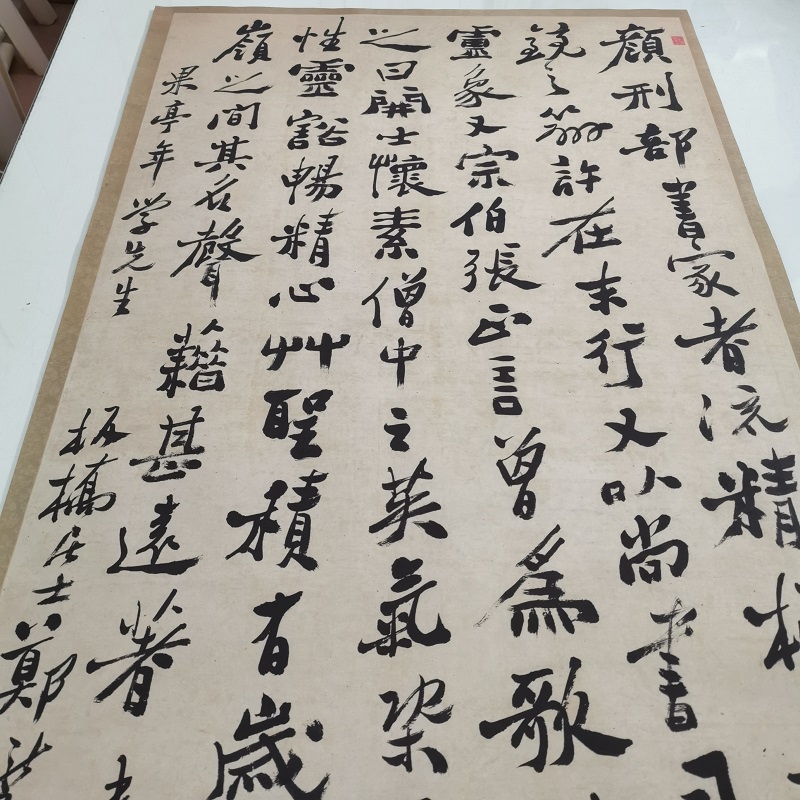 顏刑部書家者流精極
鏡之辯許在末行又以尚書司
盧象又宗伯張正言曾爲歌
之曰開士懷素僧中之英氣
性靈豁暢精心艸聖積有歲
嶺之間其名聲藉甚遠著
果亭年学先生
板橋居士鄭